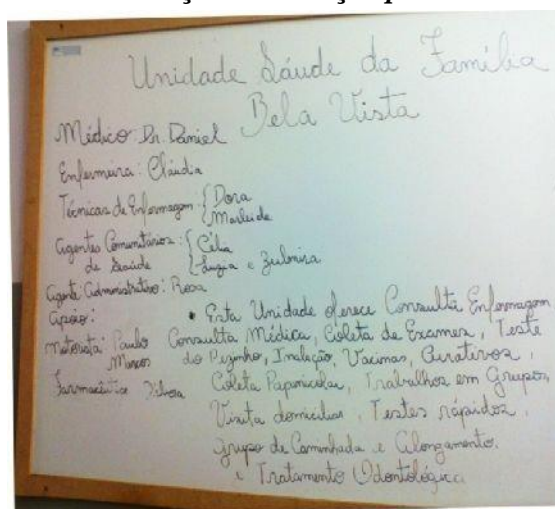 Unidade Saúde da Família
Bela Vista
Médico: Dr. Daniel
Enfermeira: Cláudia
Técnicas de Enfermagem: { Dora
Marleide
Agentes Comunitários: { Célia
de Saúde { Luzia e Zulmira
Agente Administrativo: Rosa
Apoio:
Motorista: Paulo
Marcos
Farmacêutica
• Esta Unidade oferece Consulta Enfermagem
Consulta Médica, Coleta de Exames, Teste
do Pezinho, Inalação, Vacinas, Curativos,
Coleta Papanicolau, Trabalhos em Grupos,
Visita domiciliar, Testes rápidos,
grupo de Caminhada e Alongamento.
e Tratamento Odontológico